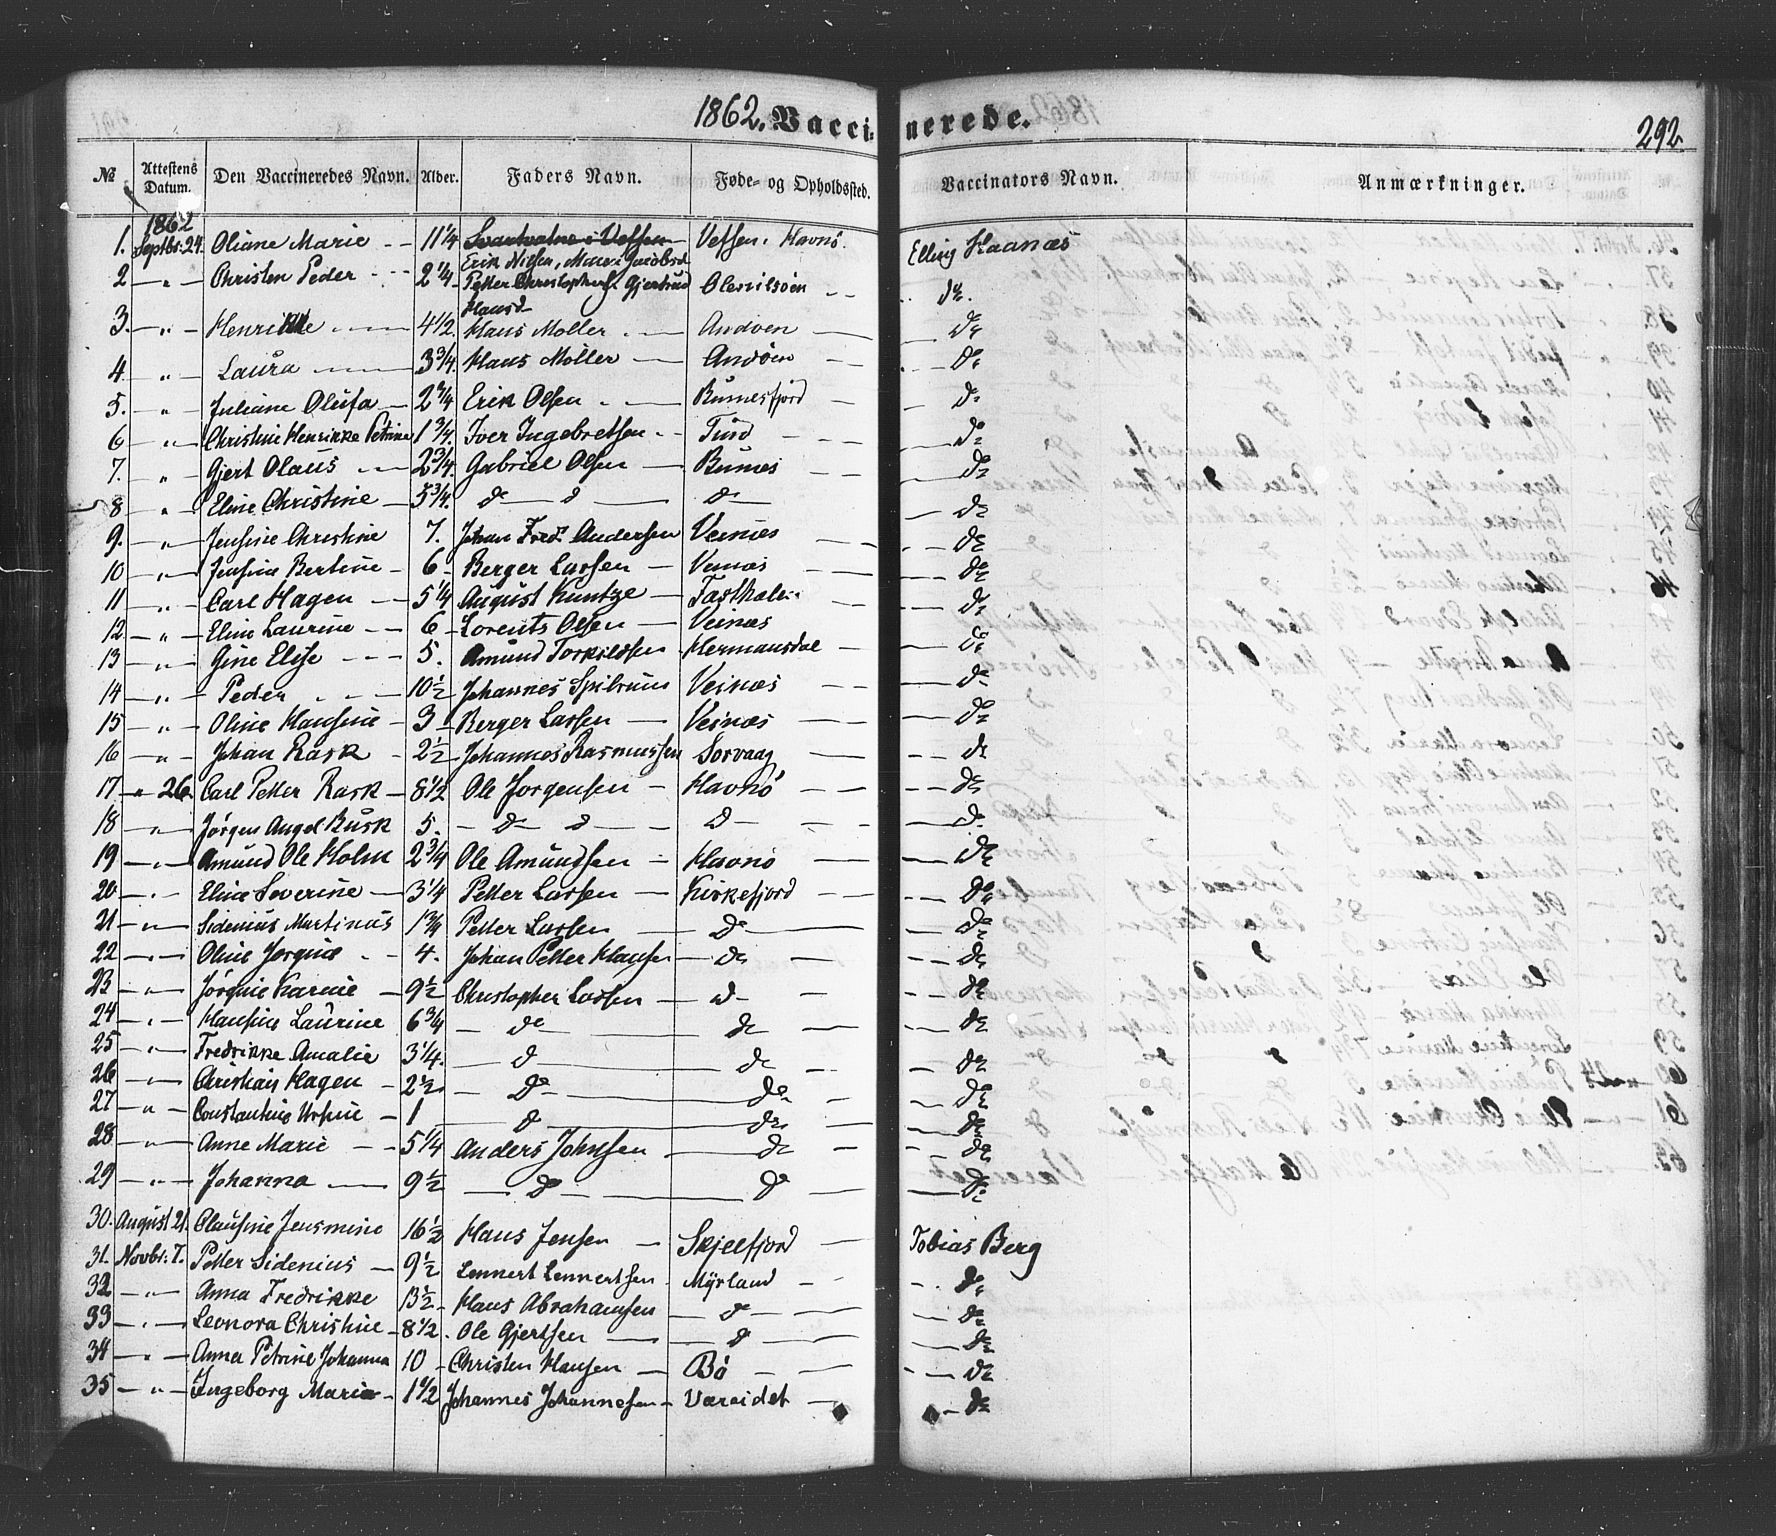 1862. Vacci- nerede. 292.
№ Attestens Datum. Den Vaccineredes Navn. Alder. Faders Navn. Føde- og Opholdssted. Vaccinators Navn. Anmærkninger.
1862
1. Septbr. 24. Oliane Marie 11 1/4 Svartvatne i Vefsen Vefsen. Havnö. Elling Haanæs
Erik Nilsen, Maren Jacobsd
2 " Christen Peder 2 1/4 Petter Christophers. Gjertrud Olenilsöen do.
Hansd
3. " Henrikke 4 1/2 Hans Moller Andoen do
4 " Laura 3 3/4 Hans Möller Andöen do
5. " Juliane Olufa 2 3/4 Erik Olsen Bunesfjord do
6 " Christine Henrikke Petrine 1 3/4 Iver Ingebretsen Tind do
7. " Gjert Olaus 2 3/4 Gabriel Olsen Bunes do
8 " Eline Christine 5 3/4 do d do do
9. " Jensine Christine 7. Johan Fred. Andersen Veinæs do
10 " Jensine Bertine 6 Berger Larsen Veinæs do
11 " Carl Hagen 5 1/4 August Kuntze Tasthalen do
12 " Eline Laurine 6 Lorents Olsen Veinæs
13 " Gine Elise 5. Amund Torkildsen Hermansdal do
14 " Peder 10 1/2 Johannes Spilrum Veinæs do
15 " Oline Hansine 3 Berger Larsen Veinæs do
16 " Johan Rask 2 1/2 Johannes Rasmussen Sorvaag do
17 " 26. Carl Petter Rask 8 1/2 Ole Jorgensen Havnö do
18 " Jørgen Angel Rusk 5. do d d do
19 " Amund Ole Holm 2 3/4 Ole Amundsen Havnö do
20 " Elise Severine 3 1/4 Petter Larsen Kirkefjord do
21 " Sidenius Martinus 1 3/4 Petter Larsen do do
22 " Oline Jorgine 4. Johan Petter Hansen do do
23 " Jörgine Karine 9 1/2 Christopher Larsen d do
24 " Hansine Laurine 6 3/4 do do do
25 " Fredrikke Amalie 3 1/4. d do do
26 " Christian Hagen 2 1/2 do do do
27 " Constantine Ursine 1 d do do
28 " Anne Marie 5 1/4 Anders Johnsen do do
29 " Johanna 9 1/2 do do do
30. August 21. Clausine Jensmine 16 1/2 Hans Jensen Skjelfjord Tobias Berg
31. Novbr. 7. Petter Sidenius 9 1/2 Lennert Lennertsen Myrland do
32 " Anna Fredrikke 13 1/2 Hans Abrahamsen d do
33 " Leonora Christine 8 1/2 Ole Gjertsen d do
34 " Anna Petrine Johanna 10 Christen Hansen Bö do
35 " Ingeborg Marie 1 1/2 Johannes Johannesen Væreidet do